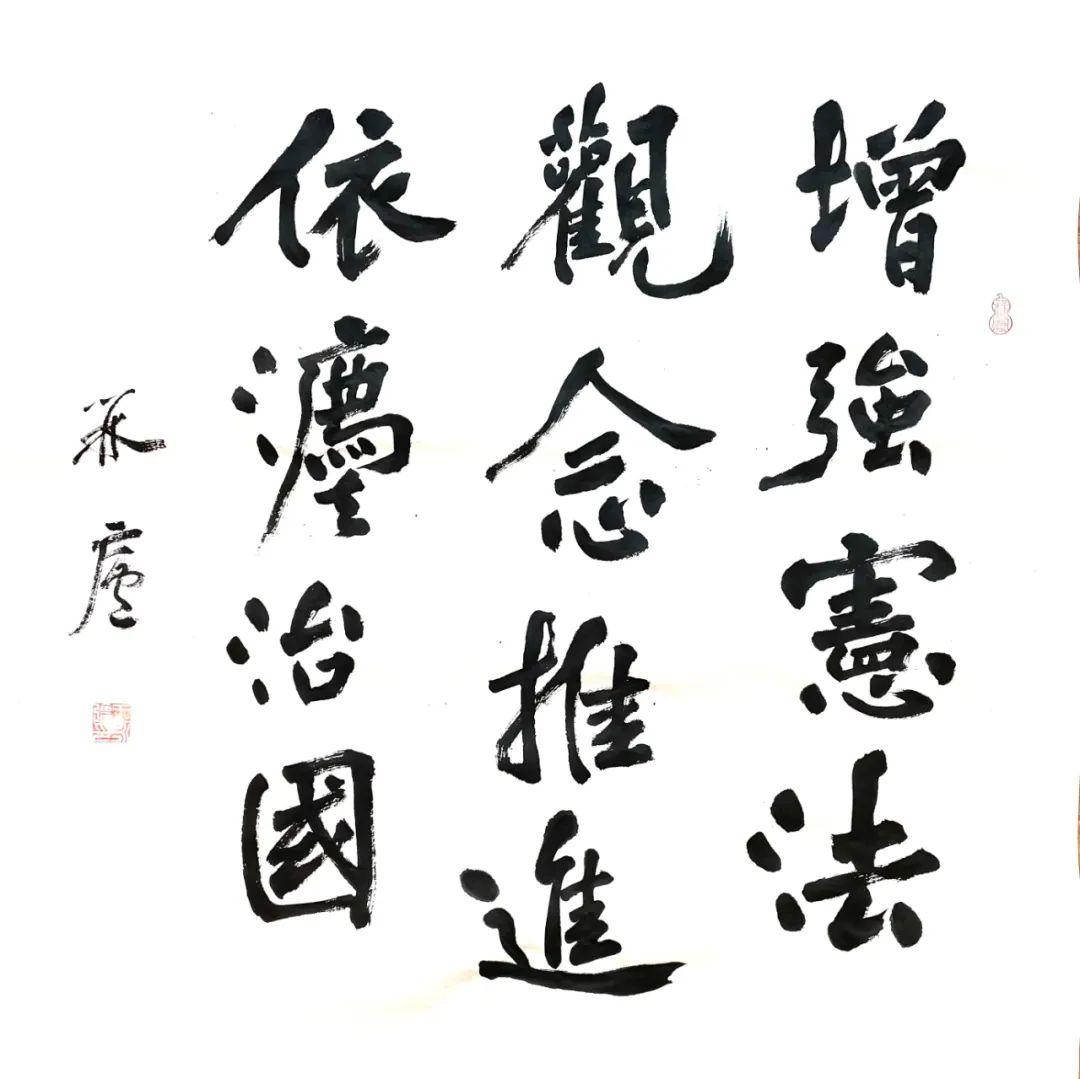 增強憲法
觀念推進
依灋治國